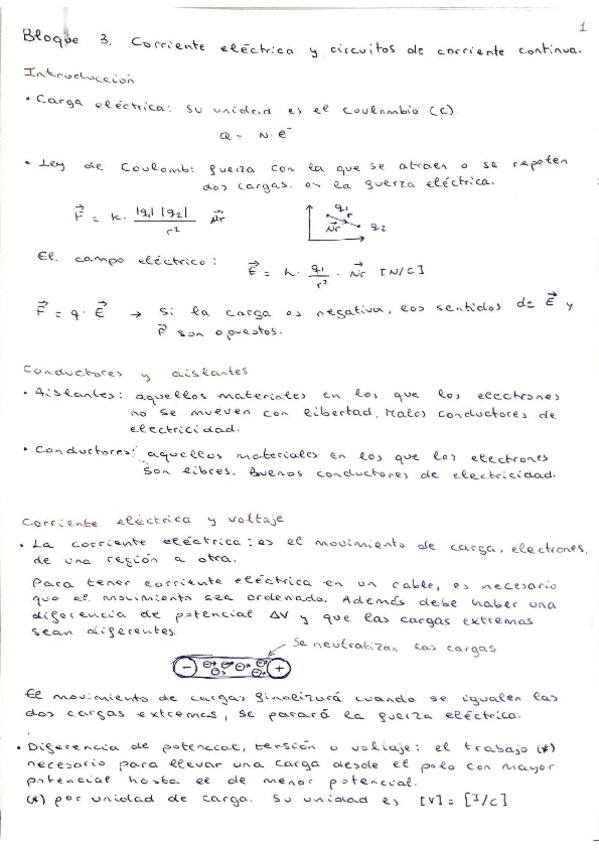 1
Bloque 3. Corriente eléctrica y circuitos de corriente continua.
Introducción
• Carga eléctrica: su unidad es el Coulombio (C)
Q = N·e⁻
• Ley de Coulomb: fuerza con la que se atraen o se repelen
dos cargas. es la fuerza eléctrica.
F⃗ = k · |q₁| |q₂| / r² μ⃗r
q₁ r μ⃗r q₂
El campo eléctrico: E⃗ = k · q₁ / r² · μ⃗r [N/C]
F⃗ = q · E⃗ → Si la carga es negativa, los sentidos de E⃗ y
F⃗ son opuestos.
Conductores y aislantes
• Aislantes: aquellos materiales en los que los electrones
no se mueven con libertad. Malos conductores de
electricidad.
• Conductores: aquellos materiales en los que los electrones
son libres. Buenos conductores de electricidad.
Corriente eléctrica y voltaje
• La corriente eléctrica: es el movimiento de carga, electrones,
de una región a otra.
Para tener corriente eléctrica en un cable, es necesario
que el movimiento sea ordenado. Además debe haber una
diferencia de potencial ΔV y que las cargas extremas
sean diferentes.
se neutralizan las cargas
− +
El movimiento de cargas finalizará cuando se igualen las
dos cargas extremas, se parará la fuerza eléctrica.
• Diferencia de potencial, tensión o voltaje: el trabajo (*)
necesario para llevar una carga desde el polo con mayor
potencial hasta el de menor potencial.
(*) por unidad de carga. Su unidad es [V] = [J/C]